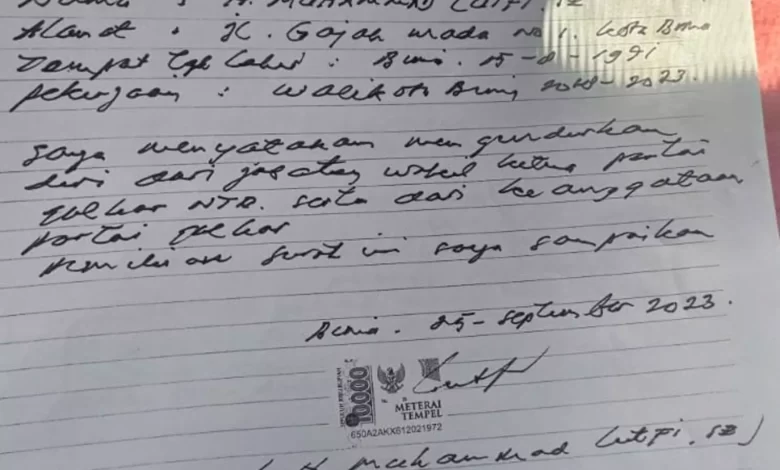 Nama : H. Muhammad Lutfi. SE
Alamat : Jl. Gajah mada No 1. Kota Bima
Tempat Tgl Lahir : Bima. 25-8-1971
pekerjaan : Walikota Bima 2018-2023.
Saya menyatakan mengundurkan
diri dari jabatan wakil ketua partai
golkar NTB. serta dari keanggotaan
partai golkar
Demikian surat ini saya sampaikan
Bima. 25-September 2023.
10000
METERAI
TEMPEL
650A2AKX612021972
(H Muhammad Lutfi. SE)